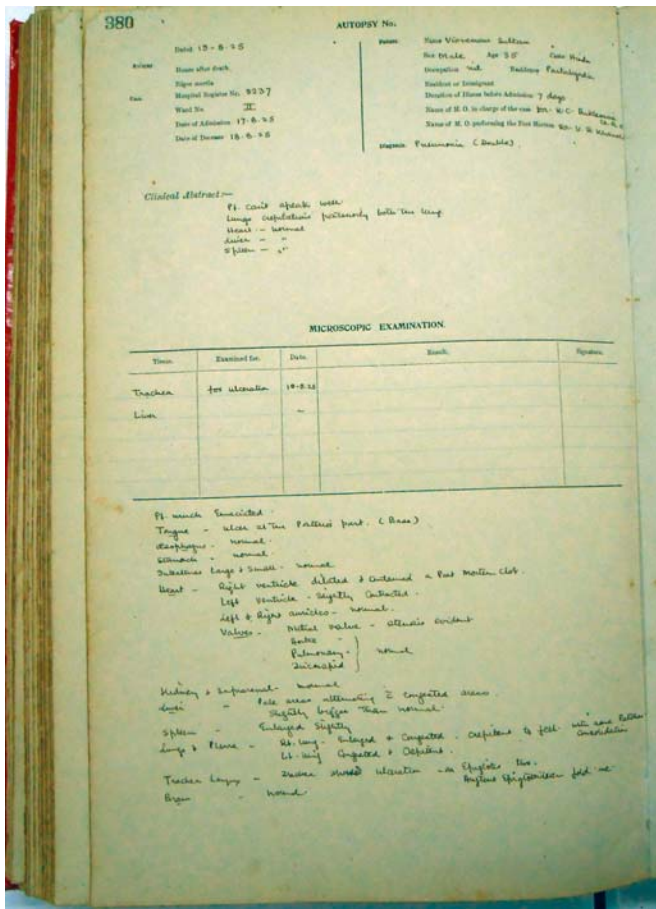 380
AUTOPSY No.
Dated 19-8-25
Hours after death.
Rigor mortis
Hospital Register No. 3237
Ward No. II
Date of Admission 17-8-25
Date of Decease 18-8-25
Name Sultan
Sex Male Age 35 Caste Hindu
Occupation nil Residence
Resident or Immigrant
Duration of Illness before Admission 7 days
Name of M. O. in charge of the case Dr.
Name of M. O. performing the Post Mortem Dr.
Diagnosis Pneumonia (Double).
Clinical Abstract:—
Pt. can't speak well
Lungs crepitations posteriorly both the lung
Heart - normal
Liver - "
Spleen - "
MICROSCOPIC EXAMINATION.
Tissue. Examined for. Date. Result. Signature.
Trachea for ulceration 18-8-25
Liver
Pt. much Emaciated.
Tongue - ulcer at the Posterior part. (Base)
Oesophagus - normal.
Stomach - normal.
Intestines Large & Small - normal.
Heart - Right ventricle dilated & contained a Post Mortem Clot.
Left ventricle - Slightly Contracted.
Left & Right auricles - normal.
Valves - Mitral valve - evident
Aortic
Pulmonary normal
Tricuspid
Kidney & Suprarenal - normal
Liver - Pale areas alternating c̄ congested areas.
Slightly bigger than normal.
Spleen - Enlarged Slightly
Lungs & Pleura - Rt. lung - Enlarged & Congested. Crepitant to feel. with some consolidation
Lt. lung Congested & Crepitant.
Trachea Larynx - Trachea ulceration Epiglottis
fold
Brain - normal